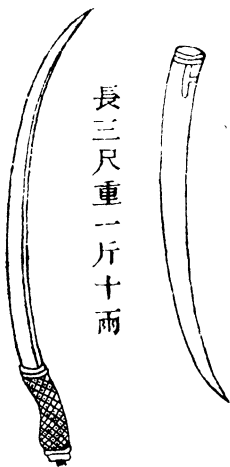 長三尺重一斤十兩